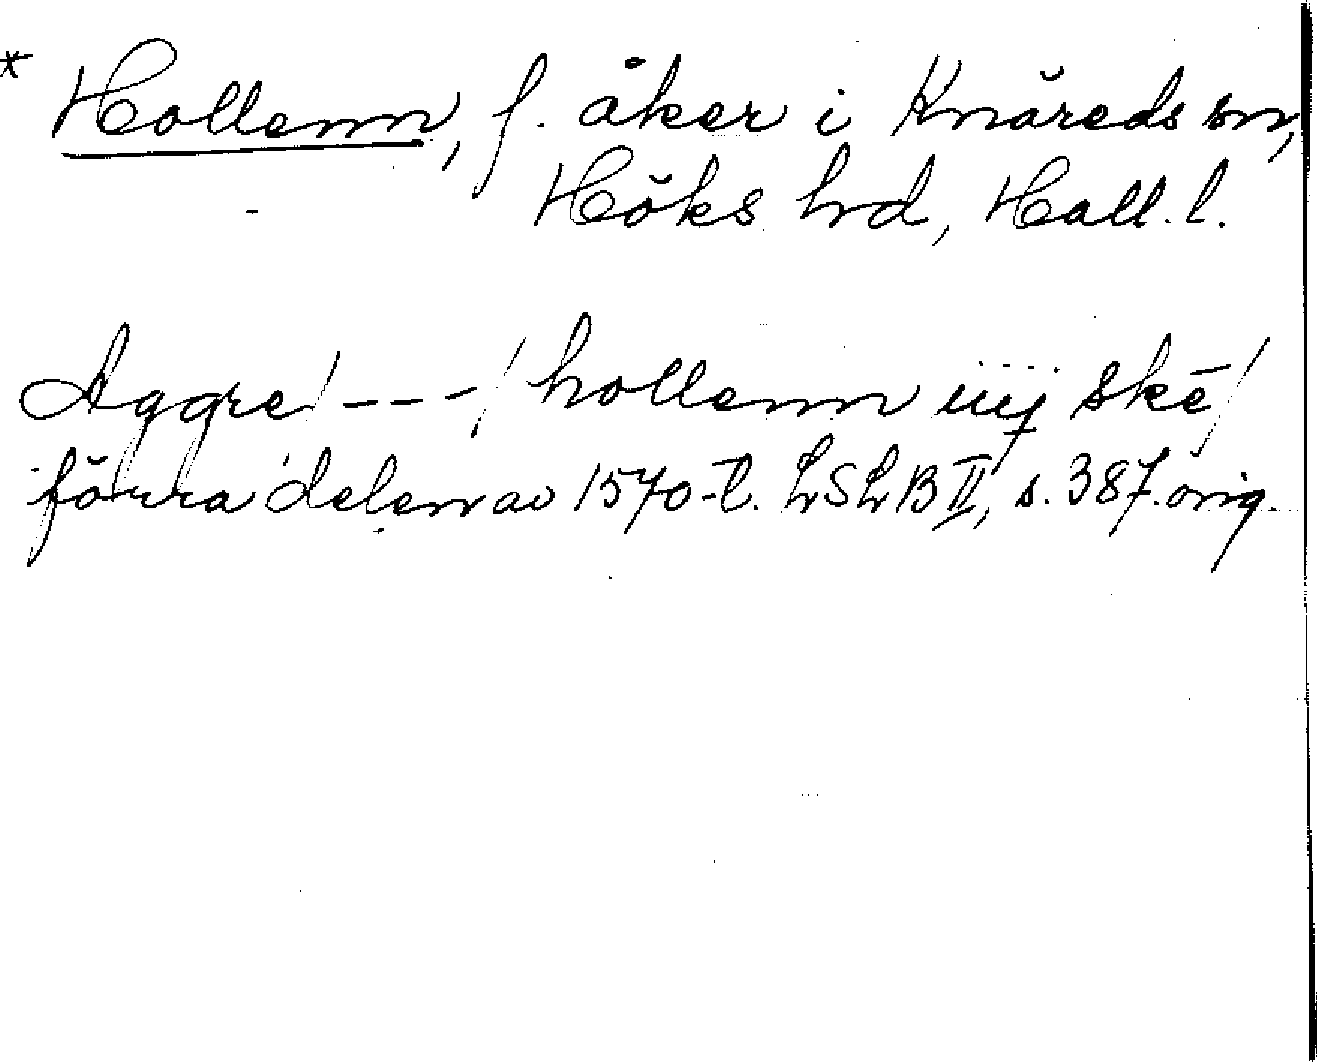 * Hollenn, f. åker i Knäreds sn,
Höks hrd, Hall. l.
Aggre / - - - / hollenn iiij skē /
förra delen av 1570-t. LSLB II, s. 387. orig.